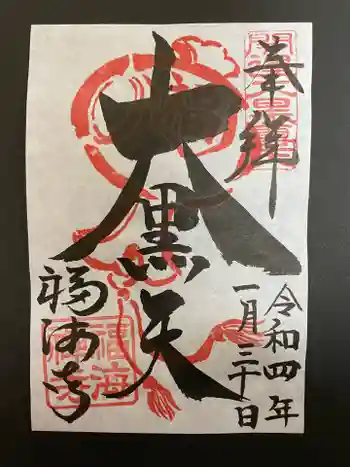 奉拝
大黒天
令和四年
一月三十日
福海寺
福海